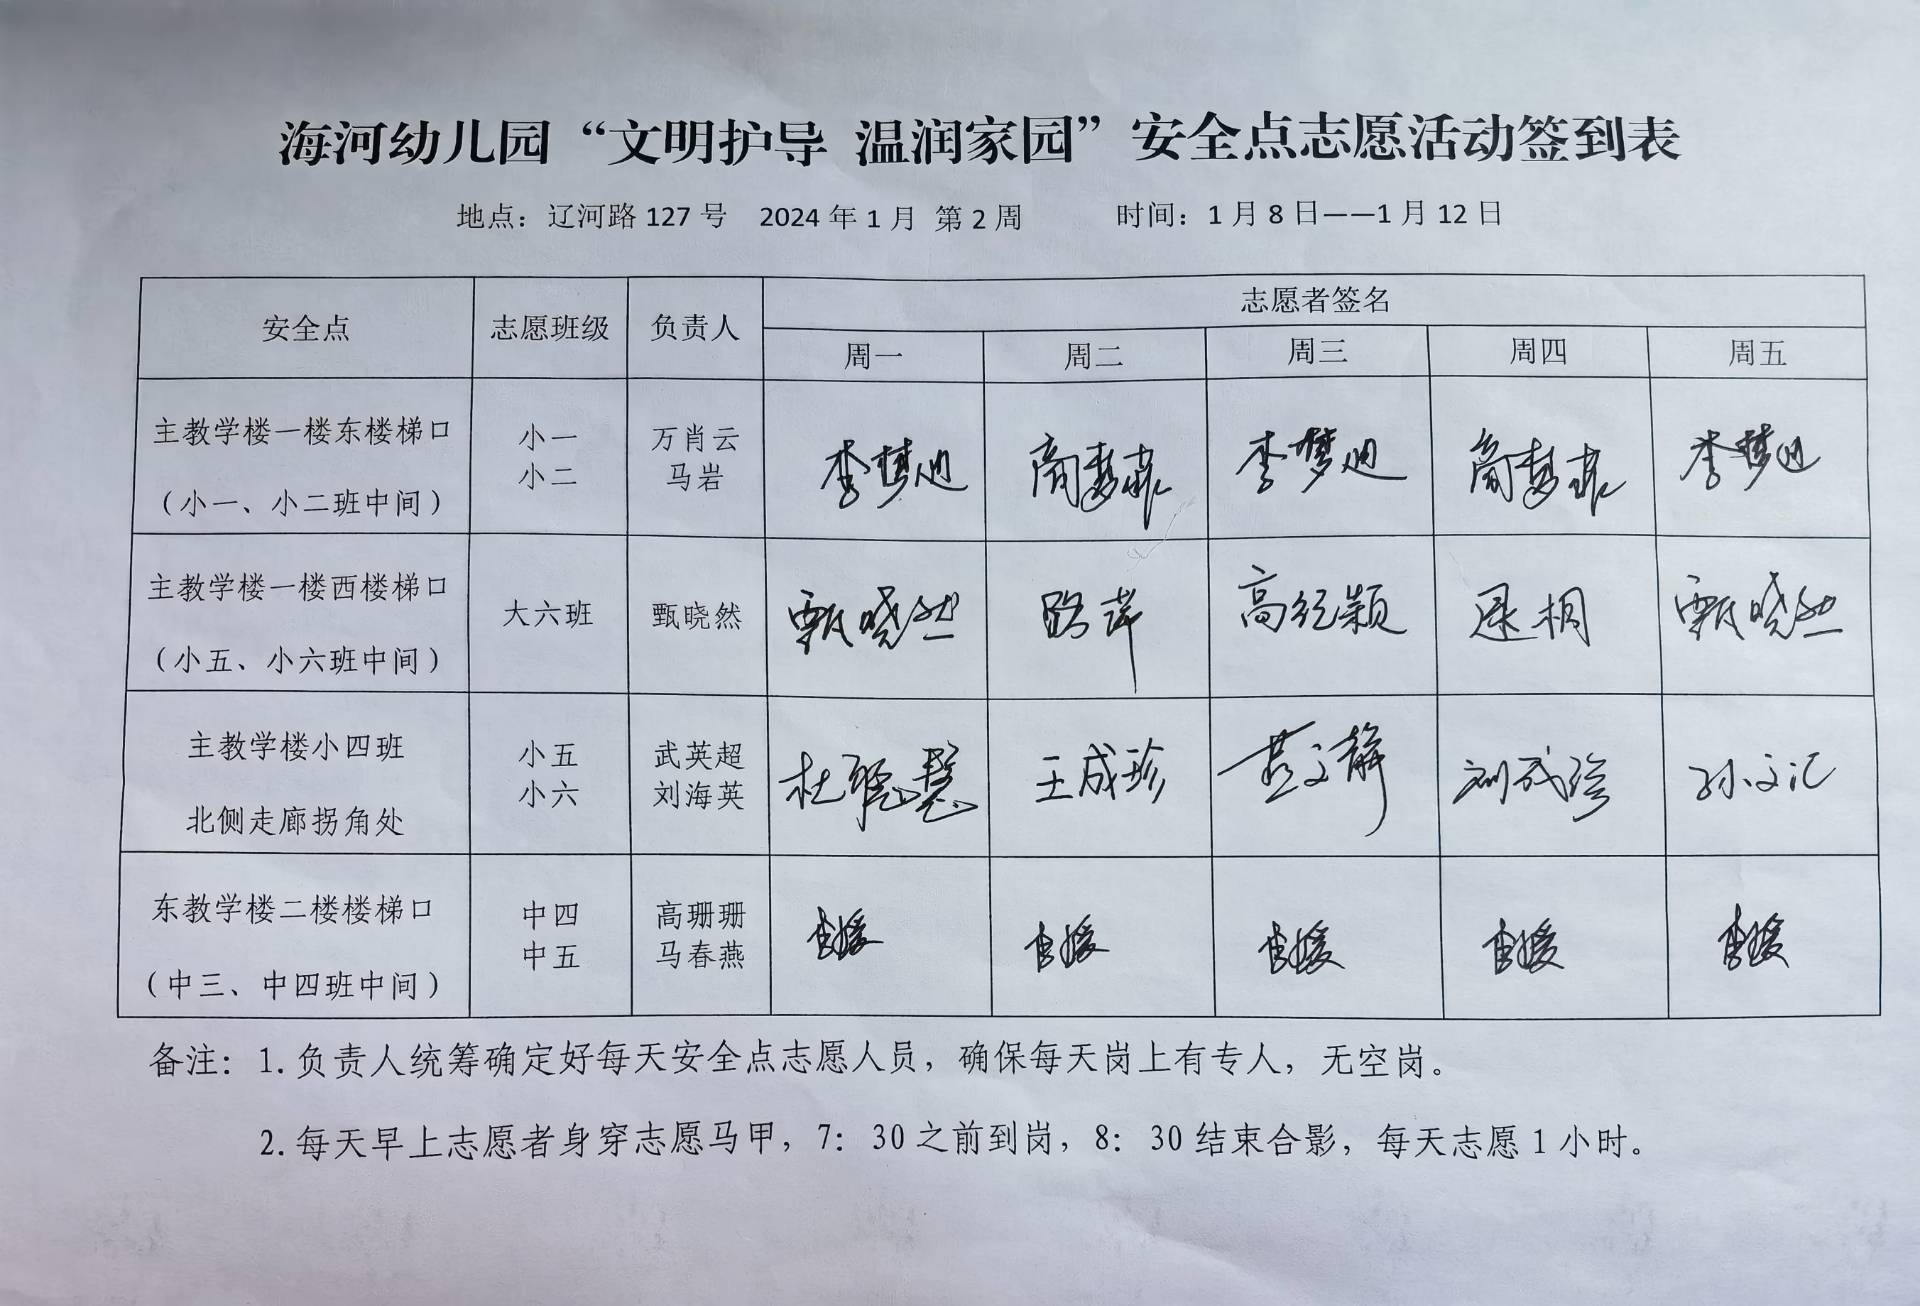 海河幼儿园“文明护导 温润家园”安全点志愿活动签到表
地点：辽河路 127 号 2024 年 1 月 第 2 周 时间：1 月 8 日——1 月 12 日
安全点 志愿班级 负责人 志愿者签名
周一 周二 周三 周四 周五
主教学楼一楼东楼梯口
（小一、小二班中间）
小一
小二
万肖云
马岩
李梦迪 商梦菲 李梦迪 商梦菲 李梦迪
主教学楼一楼西楼梯口
（小五、小六班中间）
大六班
甄晓然
甄晓然 路芳 高红颖 桐 甄晓然
主教学楼小四班
北侧走廊拐角处
小五
小六
武英超
刘海英
杜 慧 王成珍 文静 刘成珍 孙文汇
东教学楼二楼楼梯口
（中三、中四班中间）
中四
中五
高珊珊
马春燕
备注：1.负责人统筹确定好每天安全点志愿人员，确保每天岗上有专人，无空岗。
2.每天早上志愿者身穿志愿马甲，7：30 之前到岗，8：30 结束合影，每天志愿 1 小时。